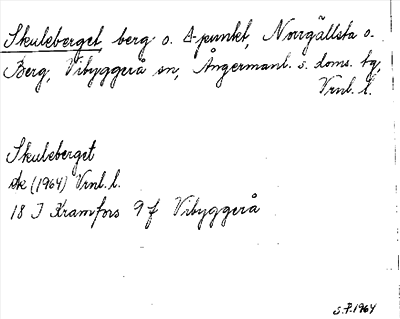 Skuleberget, berg o. Δ-punkt, Norrgällsta o.
Berg, Vibyggerå sn, Ångermanl. s. doms. tg,
Vrnl. l.
Skuleberget
ek (1964) Vrnl. l.
18 J Kramfors 9 f Vibyggerå
S.P. 1964